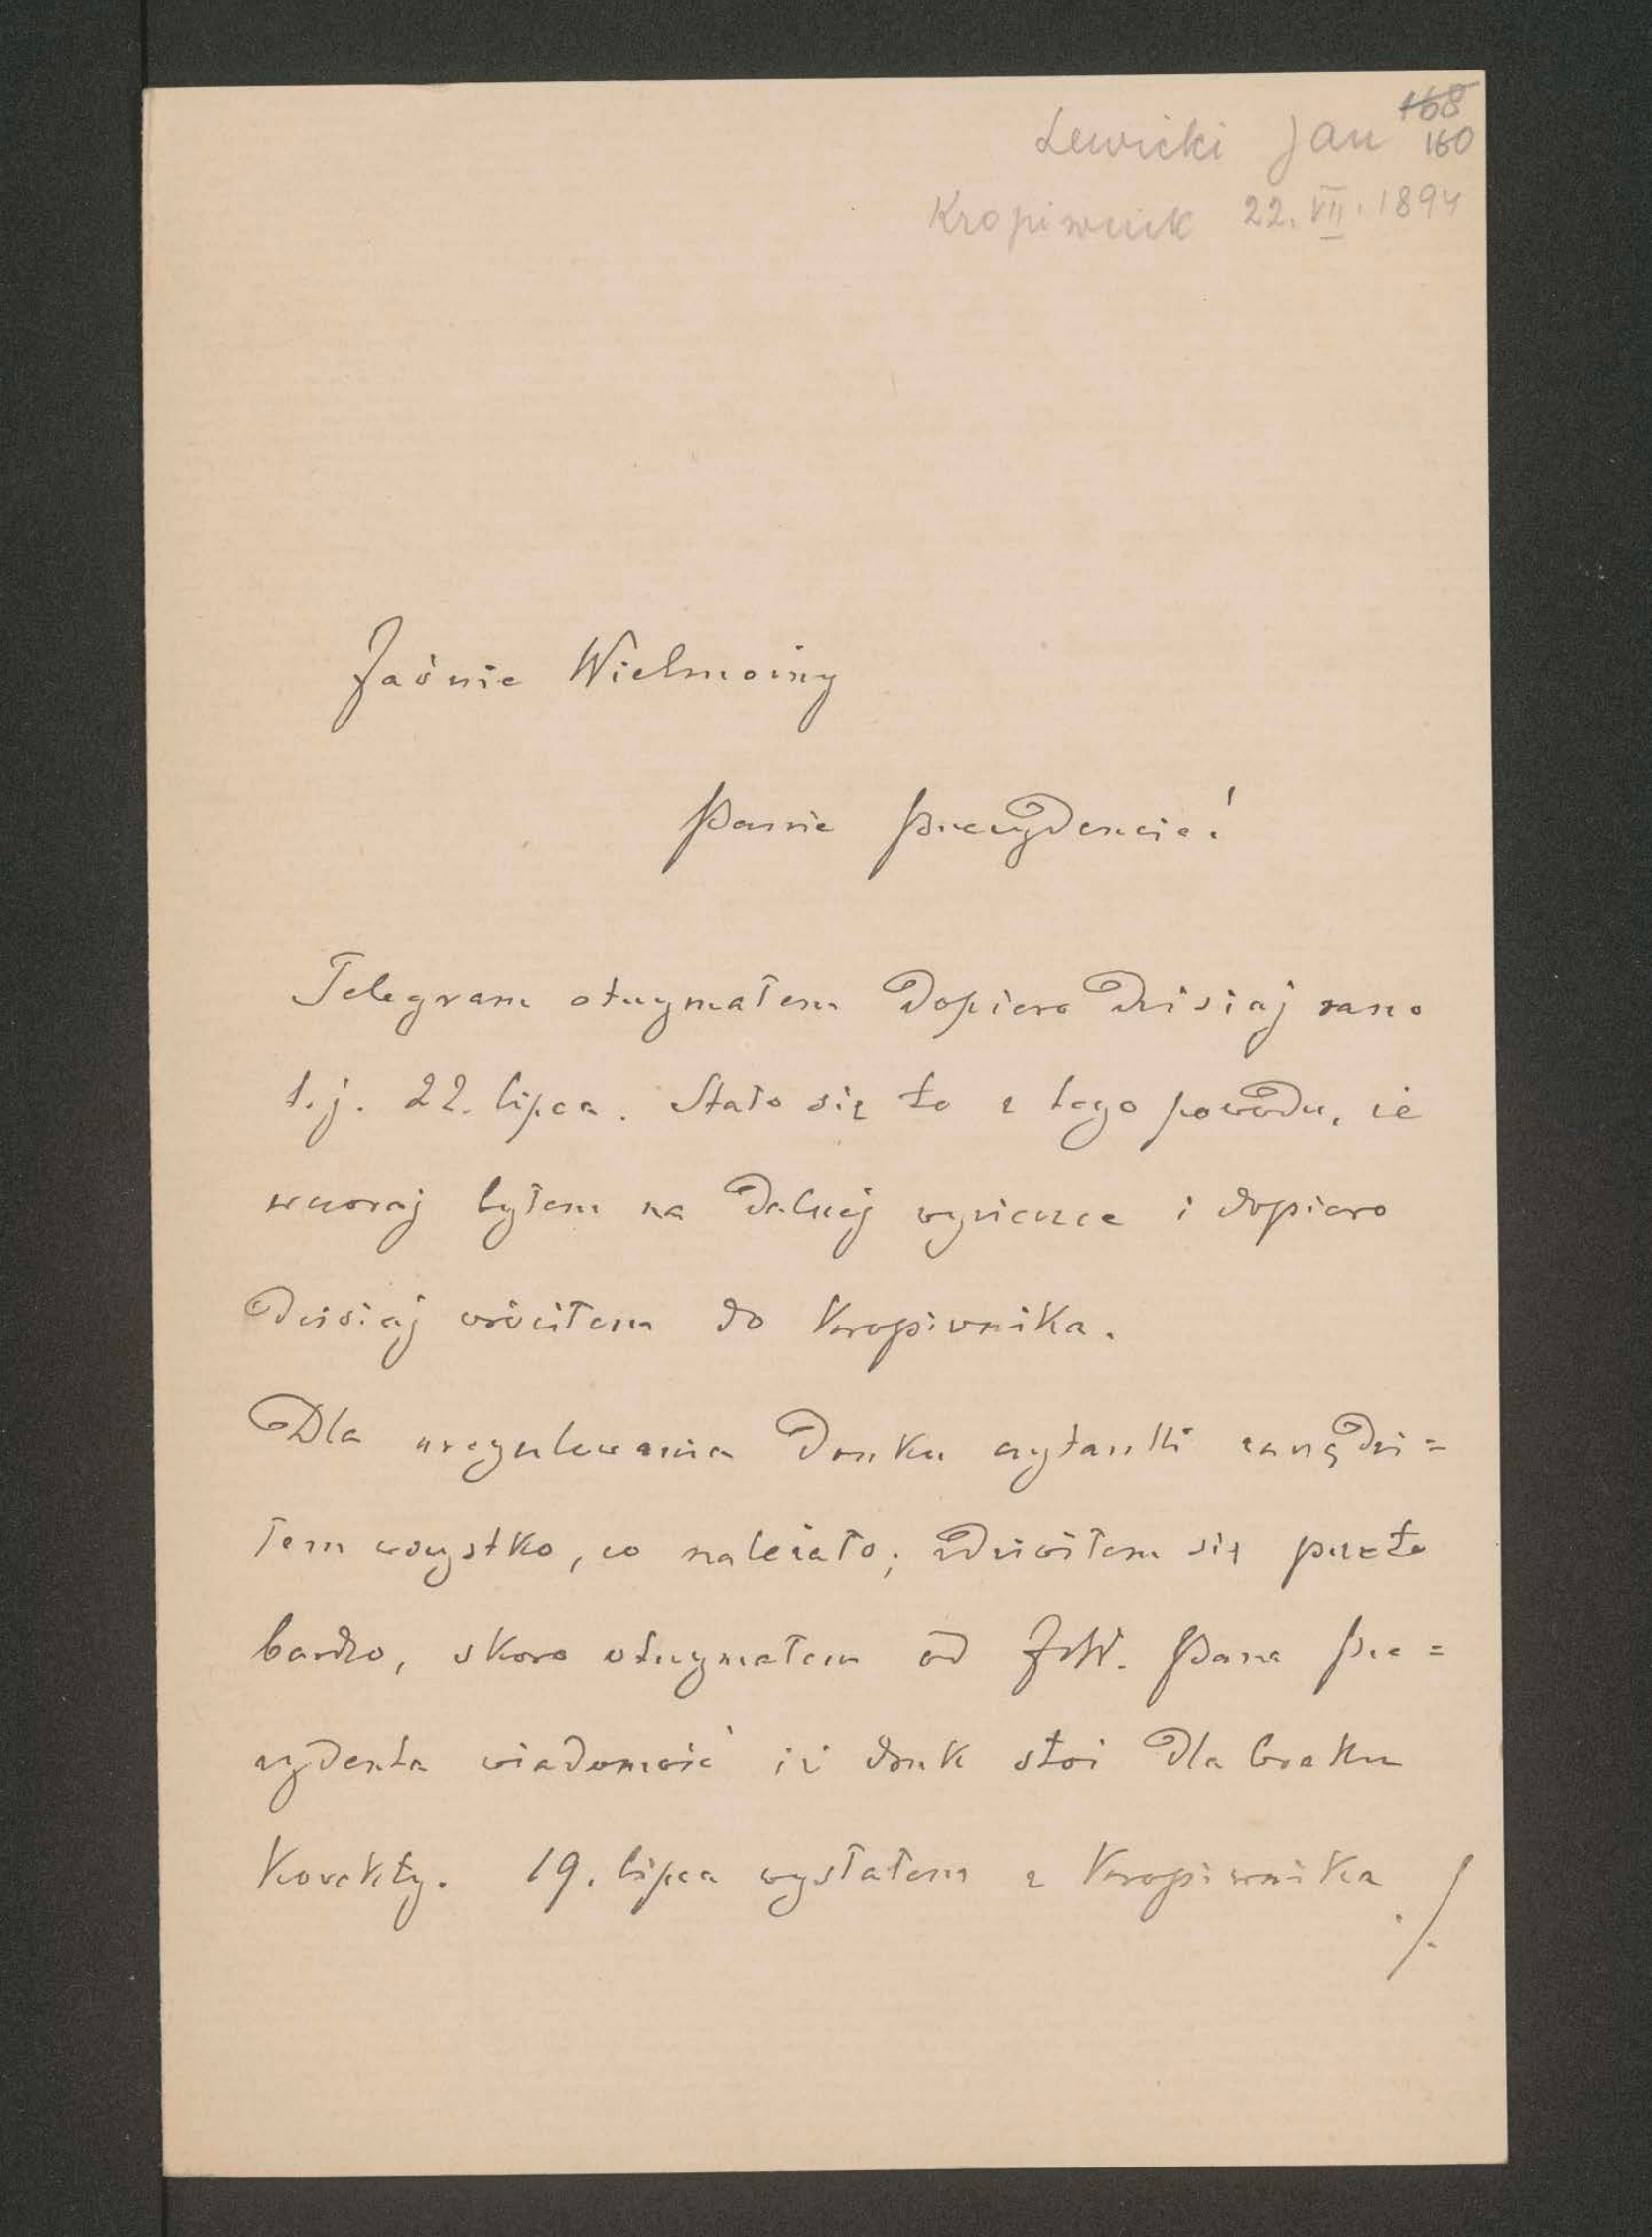 168
Lewicki Jan 160
Kropiwnik 22. VII. 1894
Jaśnie Wielmożny
Panie Prezydencie!
Telegram otrzymałem dopiero dzisiaj rano
t.j. 22. lipca. Stało się to z tego powodu, że
wczoraj byłem na dalszej wycieczce i dopiero
dzisiaj wróciłem do Kropiwnika.
Dla uregulowania druku czytanki zarządzi=
łem wszystko, co należało; zdziwiłem się przeto
bardzo, skoro otrzymałem od JW. Pana Pre=
zydenta wiadomość iż druk stoi dla braku
Korekty. 19. lipca wysłałem z Kropiwnika
./.